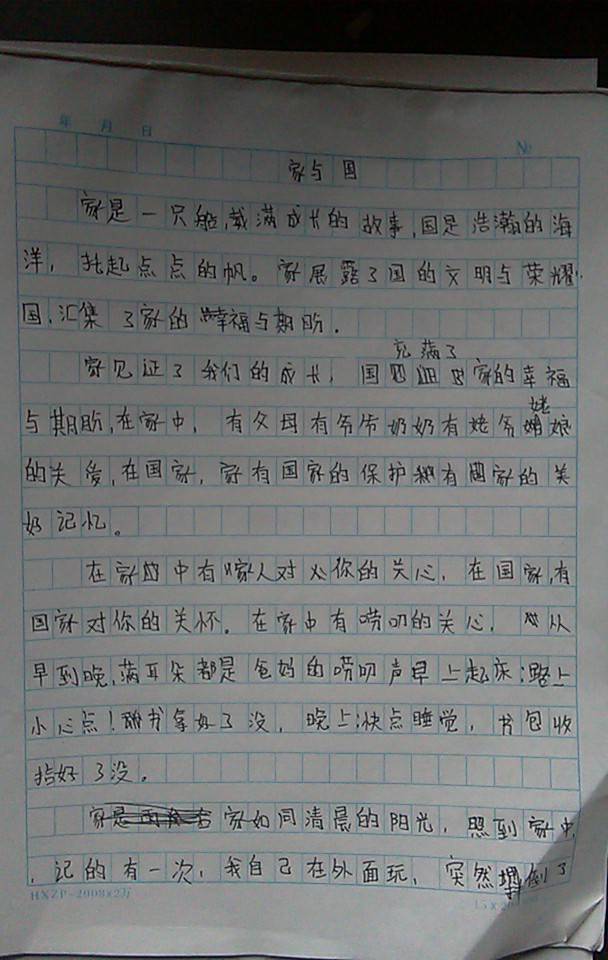 年 月 日
№
家与国
家是一只船,载满成长的故事,国是浩瀚的海
洋,托起点点的帆。家展露了国的文明与荣耀,
国,汇集了家的幸福与期盼.
充满了
家见证了我们的成长,国家的幸福
与期盼,在家中,有父母有爷爷奶奶有姥爷姥娘
的关爱,在国家,家有国家的保护有国家的美
好记忆。
在家中有家人对你的关心,在国家,有
国家对你的关怀.在家中有唠叨的关心,从
早到晚,满耳朵都是爸妈的唠叨声早上起床:路上
小心点!书拿好了没,晚上:快点睡觉,书包收
拾好了没。
家如同清晨的阳光,照到家中
,记的有一次,我自己在外面玩,突然摔倒了
HXZP-2008×2万
15×20